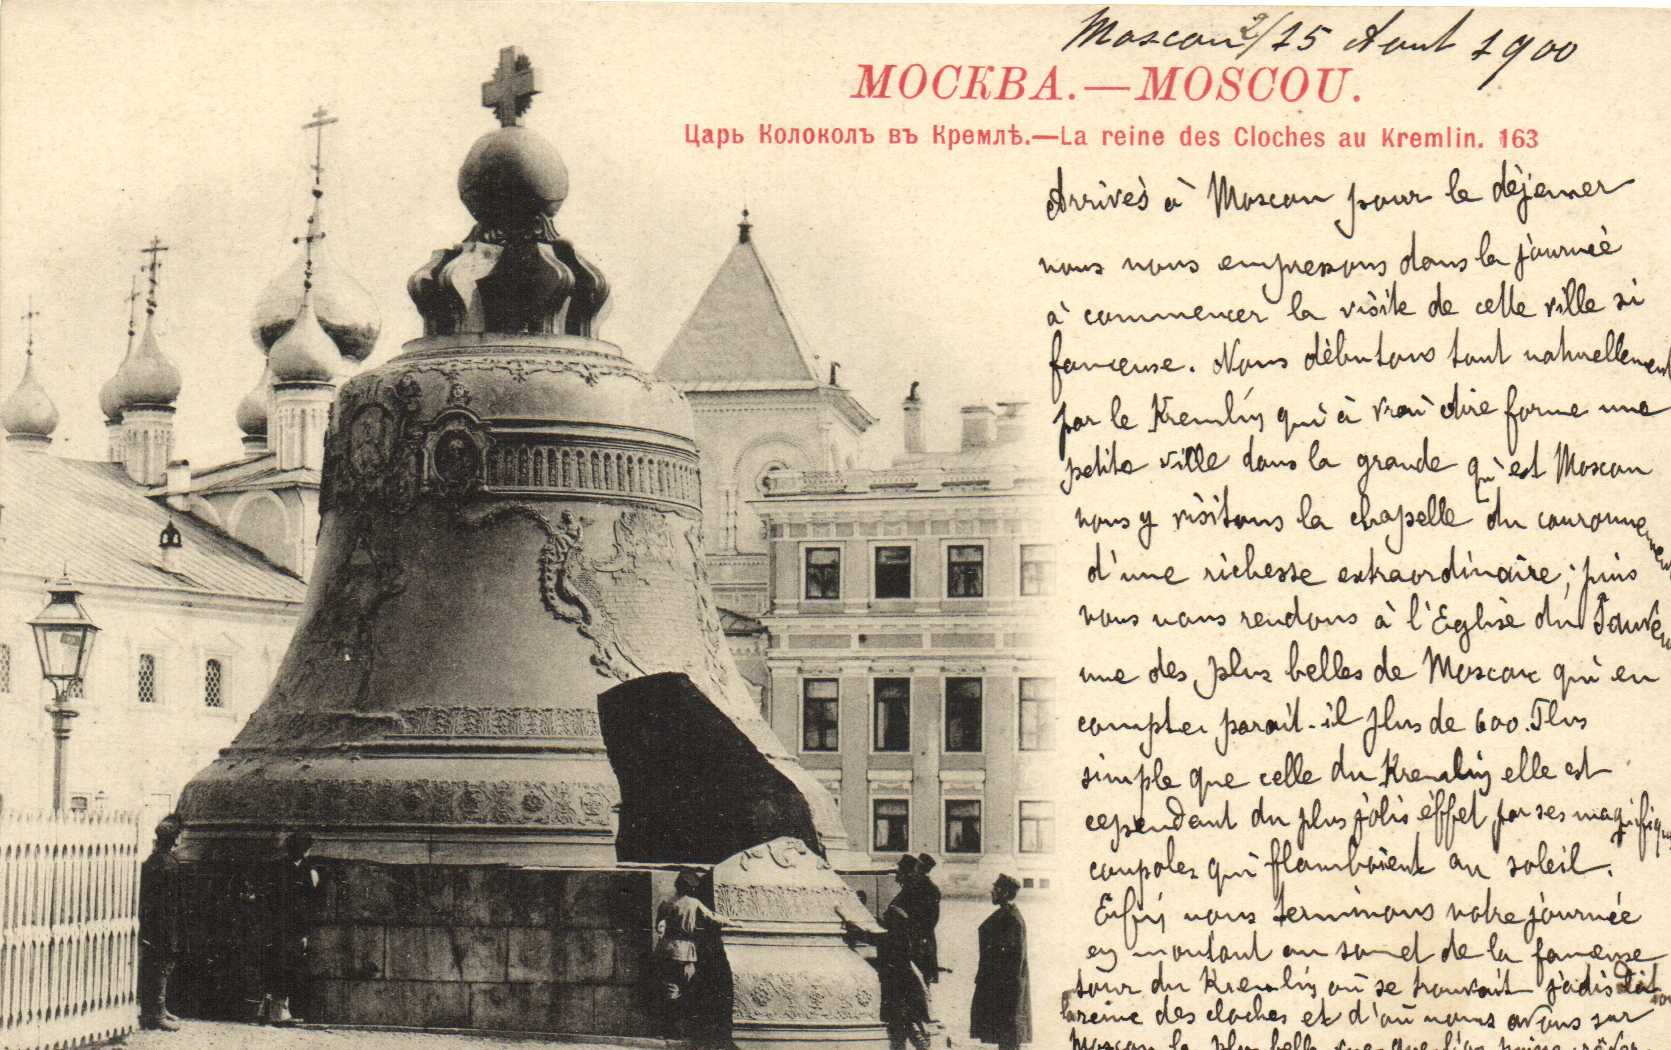 Moscou 2/15 Aout 1900
МОСКВА.—MOSCOU.
Царь Колоколъ въ Кремлѣ.—La reine des Cloches au Kremlin. 163
Arrivés à Moscou pour le déjeuner
nous nous empressons dans la journée
à commencer la visite de cette ville si
fameuse. Nous débutons tout naturellement
par le Kremlin qui à vrai dire forme une
petite ville dans la grande qu'est Moscou
nous y visitons la chapelle du couronnement
d'une richesse extraordinaire; puis
nous nous rendons à l'Eglise du Sauveur
une des plus belles de Moscou qui en
compte, parait-il plus de 600. Plus
simple que celle du Kremlin elle est
cependant du plus joli effet par ses magnifiques
coupoles qui flamboient au soleil.
Enfin nous terminons notre journée
en montant au sommet de la fameuse
tour du Kremlin où se trouvait jadis
la reine des cloches et d'où nous avons sur
Moscou la plus belle vue que l'on puisse rêver.